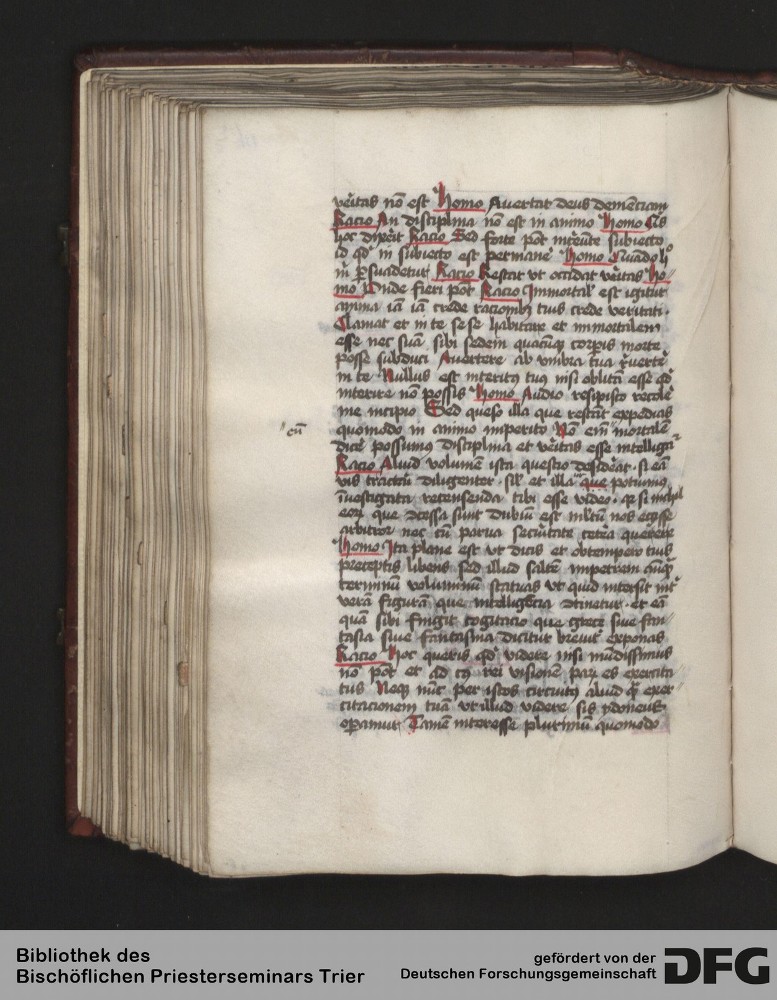 veritas nō est Homo Auertat deus demēciam
Racio An disciplina nō est in animo Homo Q̄s
hoc dixerit Racio Sed forte pōt intereūte subiecto
id qd̄ in subiecto est permane͛ Homo Quando h͛
m̄ psuadetur Racio Restat vt occidat veritas ho
mo Vnde fieri pot Racio Immortal͛ est igitur
anima iā iā crede racionibꝫ tuis crede veritati
Clamat et in te sese habitare et immortalem
esse nec suā sibi sedem quacūqꝫ corpis morte
posse subduci Auertere ab vmbra tua reuerte͛
in te Nullus est interitꝰ tuꝰ nisi oblitū esse qd̄
interire nō possis Homo Audio resipisco recole͛
me incipio Sed queso illa que restāt expedias
cū
quomodo in animo imperito Nō em̄ mortalē
dice͛ possumꝰ disciplina et veritas esse intelligāt͛
Racio Aliud volumē ista questio desiderat si eā
vis tractari diligenter sil͛ et illa que potuimꝰ
īuestigata recensenda tibi esse video qꝫ si nichil
eoꝝ que ꝯcessa sunt dubiū est mltū nos egisse
arbitror nec cū parua securitate cetera querere
Homo Ita plane est vt dicis et obtempero tuis
preceptis libens sed illud saltē impetrem anteqꝫ
terminū voluminū statuas vt quid intersit int͛
verā figurā que intelligēcia ꝯtinetur et eā
quā sibi fingit cogitacio que grece siue fan
tasia siue fantasma dicitur breuit͛ exponas
Racio Hoc queris qd̄ videre nisi mūdissimus
nō pōt et ad cꝰ rei visionē parū es exercita
tus Neqꝫ nūc per istos circuitꝰ aliud qꝫ exer
citacionem tuā vt illud videre sis ydoneus
opamur Tamē interesse plurimū quomodo
Bibliothek des
Bischöflichen Priesterseminars Trier
gefördert von der
Deutschen Forschungsgemeinschaft
DFG